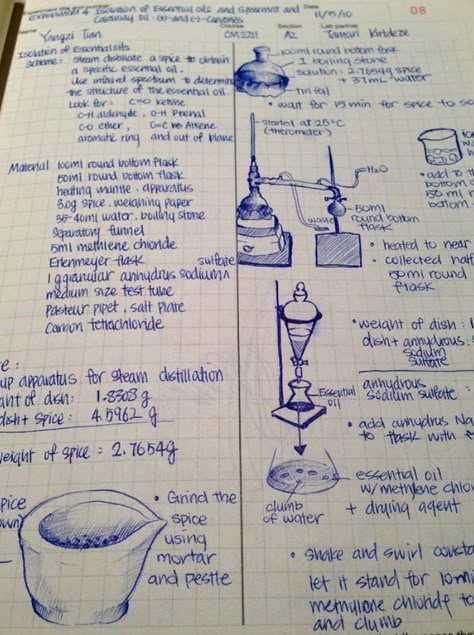 Experiment 4: Isolation of Essential oils and
Caraway oil: (+)-and(-)-Carvones
11/15/10
08
Name
Course
Section
Lab partner
Date
Yangzi Tian
CM 2211
A2
Isolation of Essential oils
scheme: steam distillate a spice to obtain
a specific essential oil.
Use infrared spectrum to determine
the structure of the essential oil.
Look for: C=O ketone
C-H aldehyde, O-H
C-O ether, C=C
aromatic ring and out of plane
Material 100ml round bottom flask
50ml round bottom flask
heating mantle, apparatus
3.0g spice, weighing paper
35-40ml water, boiling stone
separatory funnel
5ml
Erlenmeyer flask
sulfate
1g granular anhydrus sodium^
medium size test tube
Pasteur pipet, salt plate
Carbon tetrachloride
up apparatus for steam distillation
dish: 1.8308 g
dish + spice: 4.5962 g
weight of spice = 2.7654g
• Grind the
spice
using
mortar
and pestle
100ml round bottom flask
1 boiling stone
solution: 2.7654g spice
+ 37mL water
tin foil
• wait for 15 min for spice to
started at 25°C
H2O
water
50ml
round bottom
flask
• add to
bottom
50 ml
bottom
• heated to near
• collected half
50ml round
flask
Essential
oil
• weight of dish:
dish + anhydrous:
sodium
sulfate
anhydrous
sodium sulfate
• add anhydrus Na
to flask with
essential oil
+ drying agent
clumb
of water
• shake and swirl
let it stand for 10min
to
and clumb